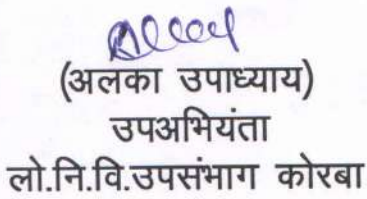 (अलका उपाध्याय)
उपअभियंता
लो.नि.वि.उपसंभाग कोरबा